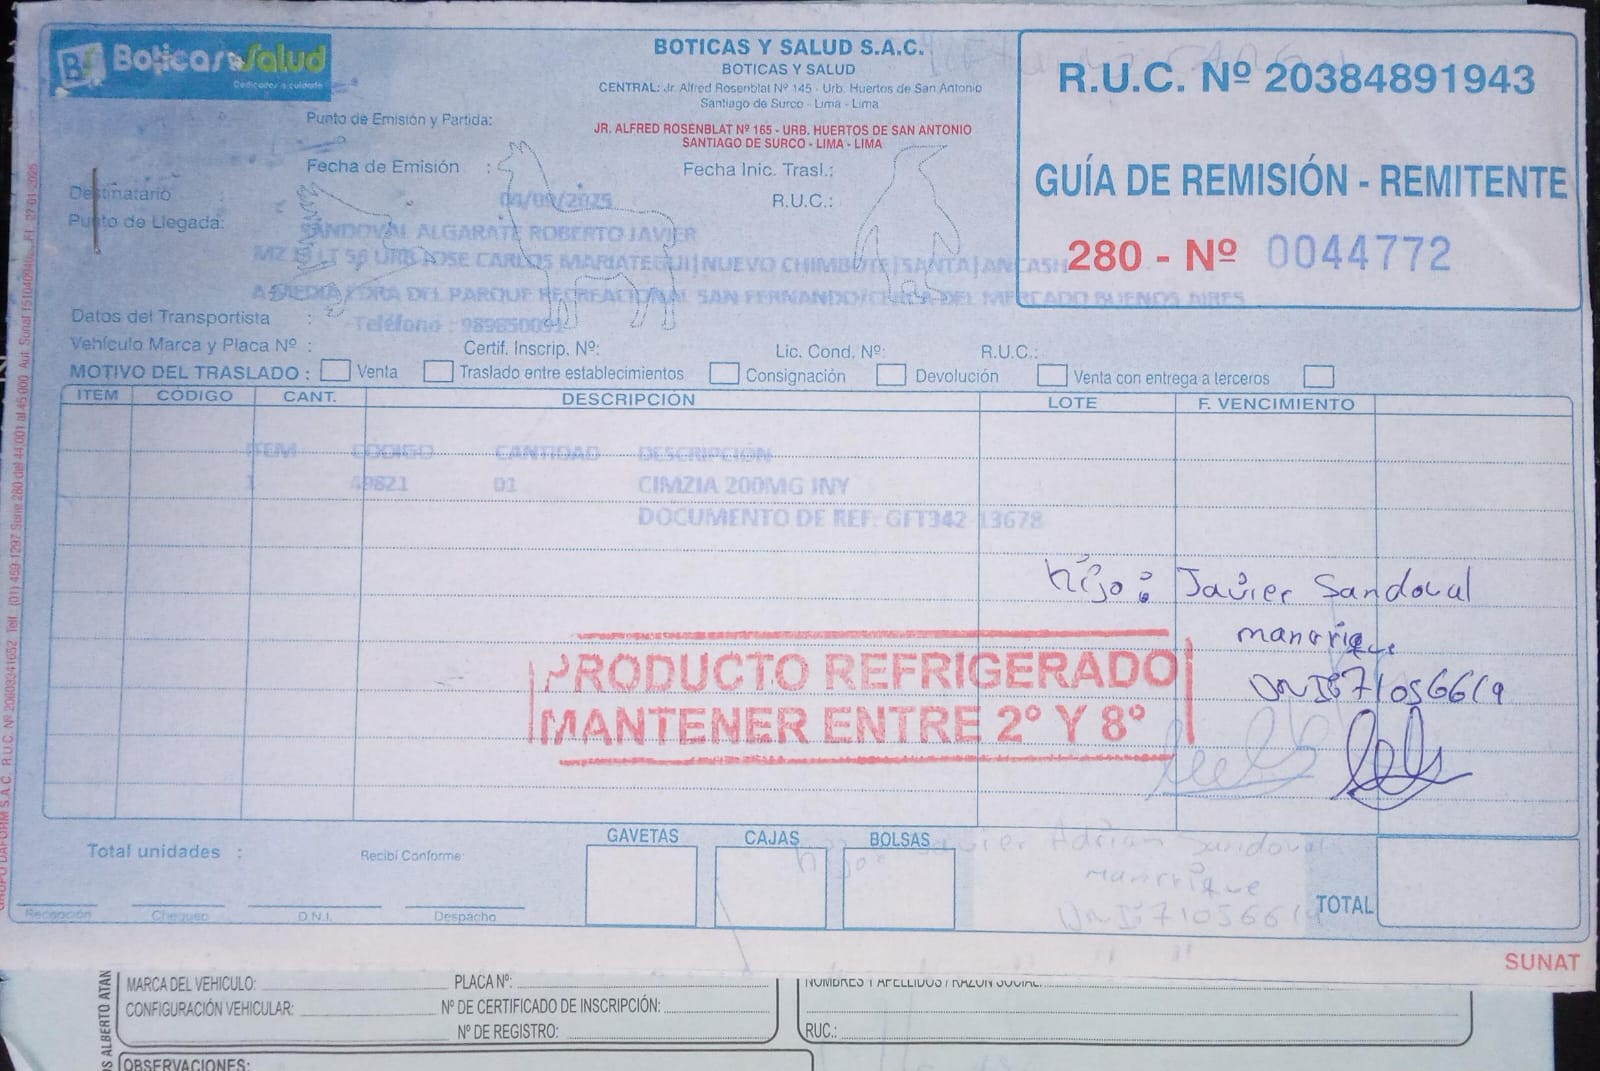 Boticas y Salud
Dedicados a cuidarte
BOTICAS Y SALUD S.A.C.
BOTICAS Y SALUD
CENTRAL: Jr. Alfred Rosenblat Nº 145 - Urb. Huertos de San Antonio
Santiago de Surco - Lima - Lima
JR. ALFRED ROSENBLAT Nº 165 - URB. HUERTOS DE SAN ANTONIO
SANTIAGO DE SURCO - LIMA - LIMA
R.U.C. Nº 20384891943
GUÍA DE REMISIÓN - REMITENTE
280 - Nº 0044772
Punto de Emisión y Partida:
Fecha de Emisión : Fecha Inic. Trasl.:
04/09/2025
Destinatario R.U.C.:
SANDOVAL ALGARATE ROBERTO JAVIER
Punto de Llegada:
MZ LT 56 URB JOSE CARLOS MARIATEGUI|NUEVO CHIMBOTE|SANTA|ANCASH
A MEDIA CDRA DEL PARQUE RECREACIONAL SAN FERNANDO/CERCA DEL MERCADO BUENOS AIRES
Datos del Transportista :
Teléfono : 989850091
Vehículo Marca y Placa Nº : Certif. Inscrip. Nº: Lic. Cond. Nº: R.U.C.:
MOTIVO DEL TRASLADO : Venta Traslado entre establecimientos Consignación Devolución Venta con entrega a terceros
ITEM CÓDIGO CANT. DESCRIPCIÓN LOTE F. VENCIMIENTO
ITEM CODIGO CANTIDAD DESCRIPCION
1 49821 01 CIMZIA 200MG INY
DOCUMENTO DE REF: GFT342-13678
hijo: Javier Sandoval
manrrique
DNI: 71056619
PRODUCTO REFRIGERADO
MANTENER ENTRE 2° Y 8°
Total unidades : Recibí Conforme: GAVETAS CAJAS BOLSAS TOTAL
hijo: Javier Adrian Sandoval
manrrique
DNI: 71056619
Recepción Chequeo D.N.I. Despacho
SUNAT
MARCA DEL VEHICULO: PLACA Nº: NOMBRES Y APELLIDOS / RAZON SOCIAL:
CONFIGURACIÓN VEHICULAR: Nº DE CERTIFICADO DE INSCRIPCIÓN:
Nº DE REGISTRO: RUC.:
OBSERVACIONES:
ALBERTO ATAN